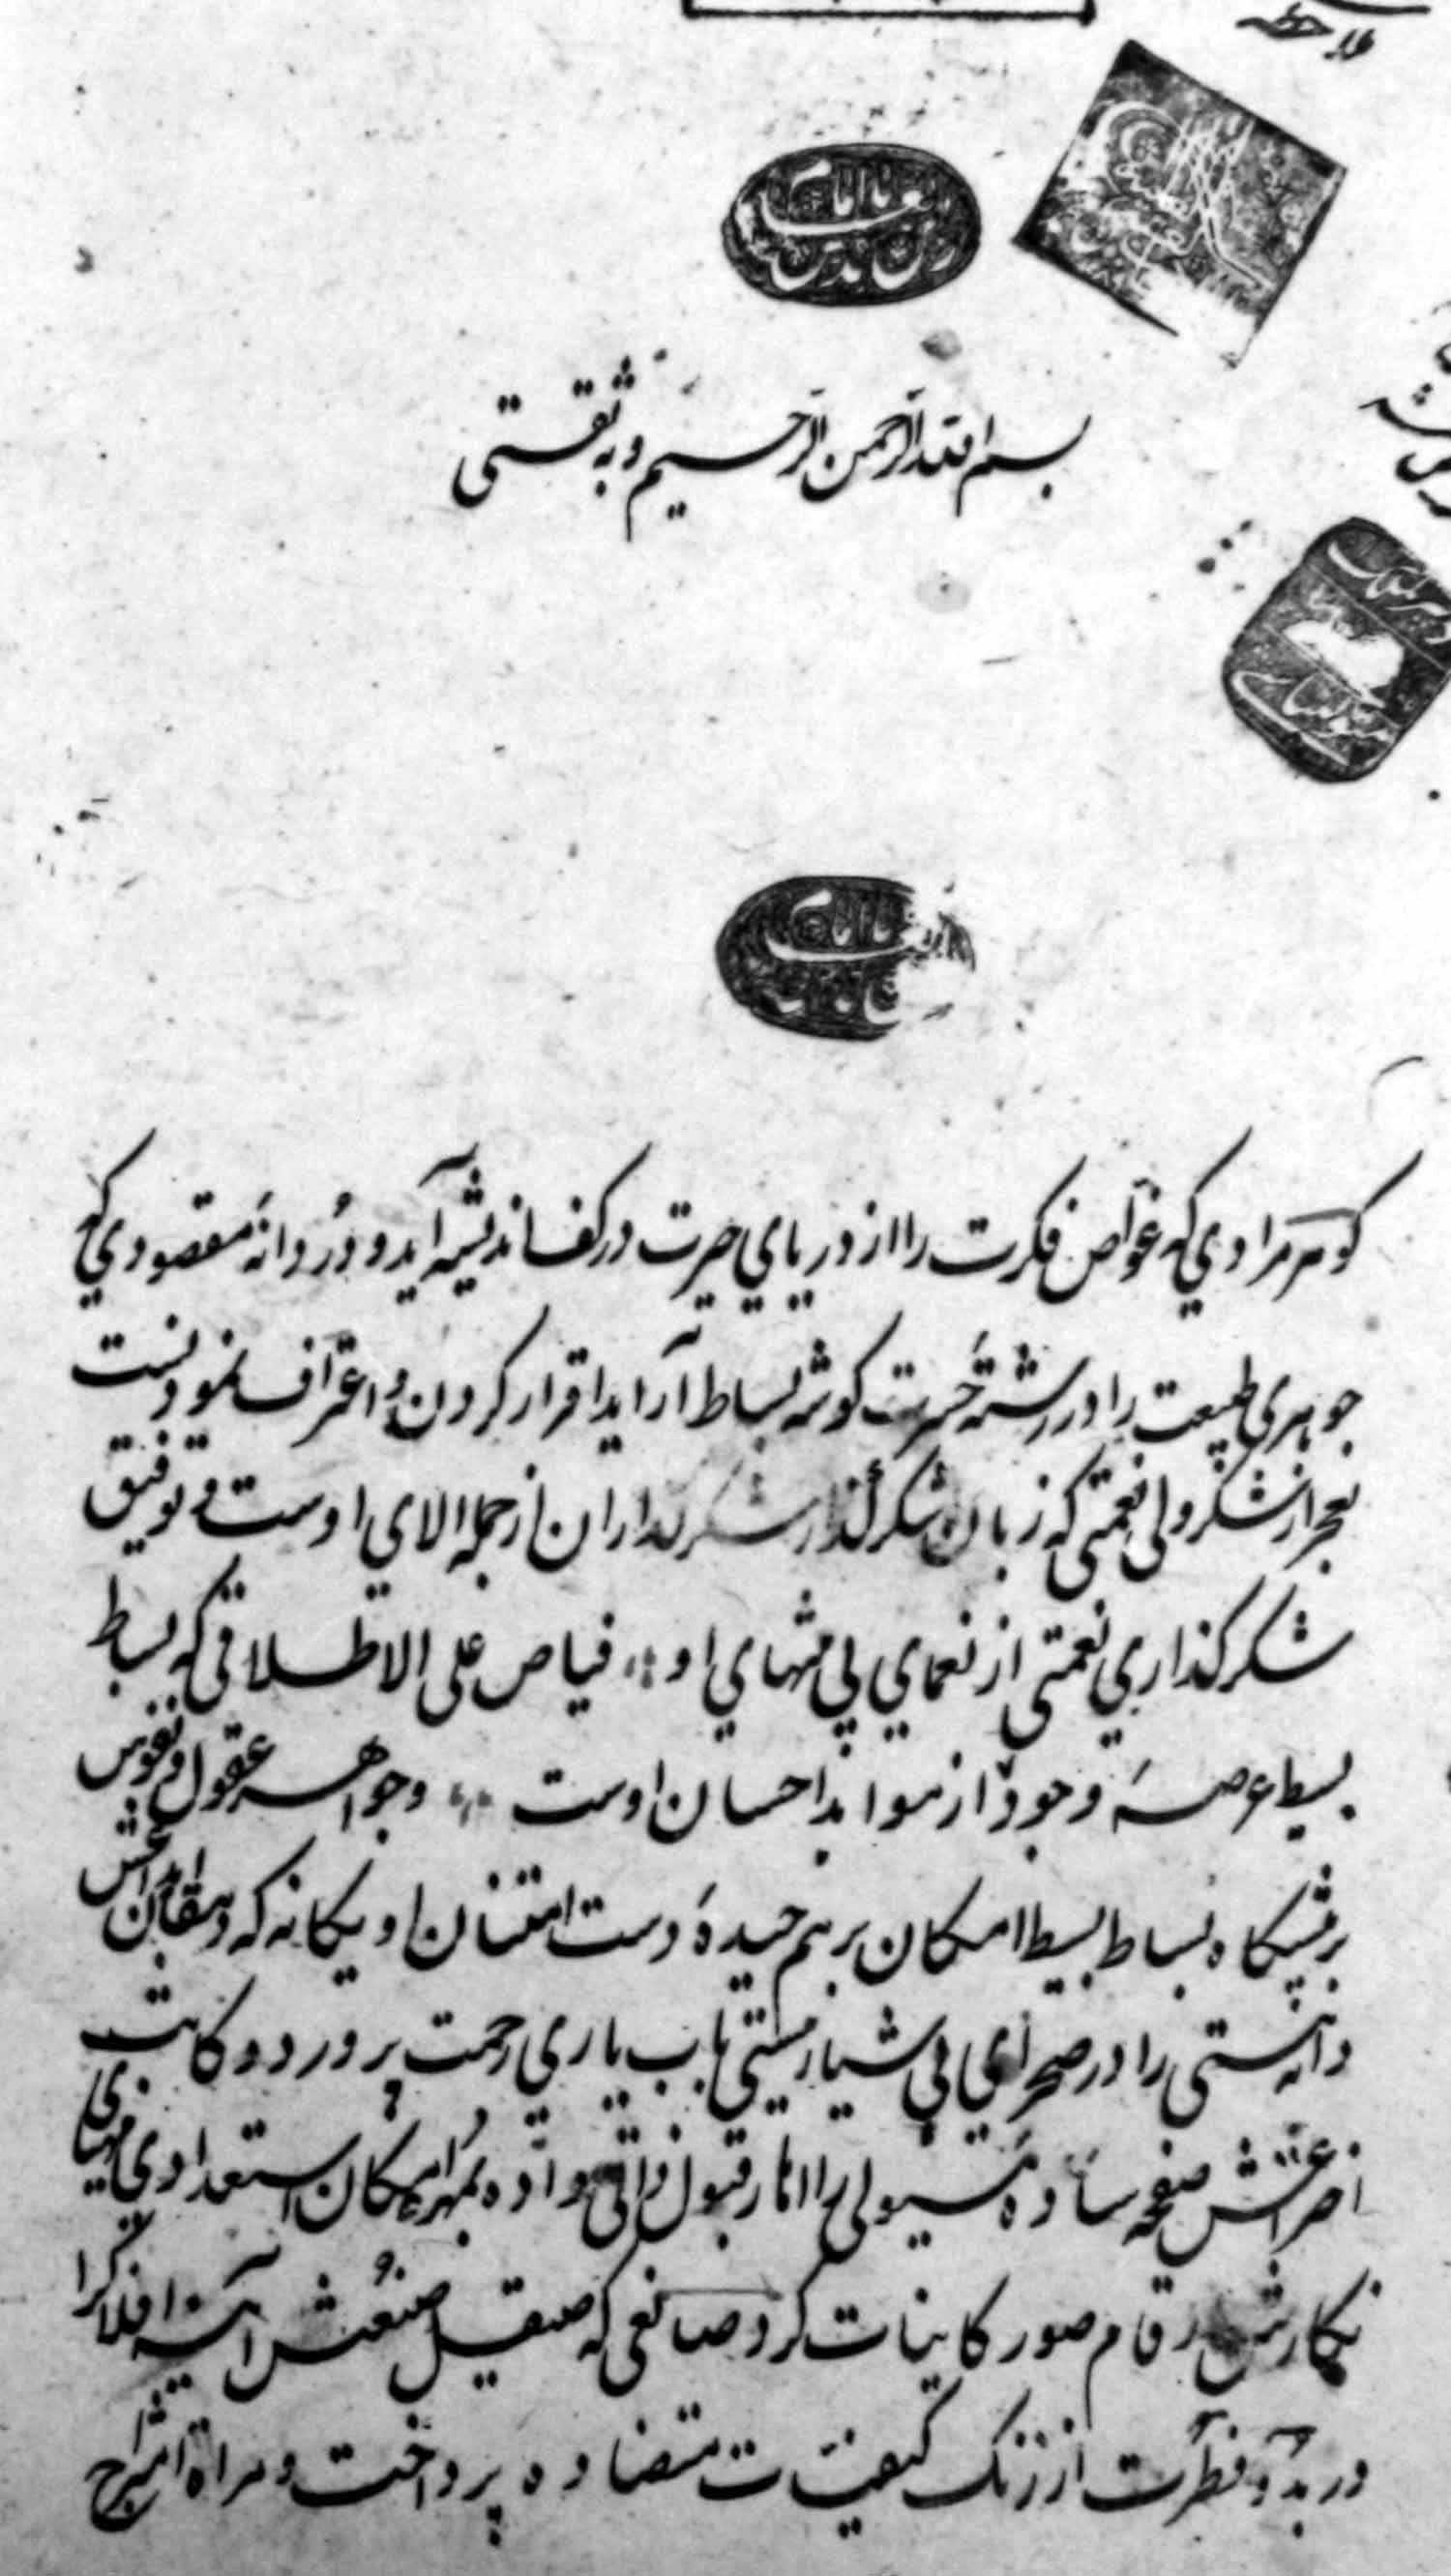 ملاحظه
بسم الله الرحمن الرحیم و به ثقتی
کوهر مرادی که غواص فکرت را از دریای حیرت در کف اندیشه آید و دُر دانهٔ مقصودی که
جوهری طبیعت را در رشتهٔ حسرت کوشه بساط آراید اقرار کردن و اعتراف نمودنست
بعجز از شکر ولی نعمتی که زبان شکر گذار شکرگذاران از جمله الای اوست و توفیق
شکر کذاری نعمتی از نعمای بی منتهای او فیاض علی الاطلاقی که بساط
بسیط عرصهٔ وجود از مواید احسان اوست وجواهر عقول و نفوس
بر پیشکاه بساط بسیط امکان برهم چیدهٔ دست امتنان او یکانه که دهقان
دانه هستی را در صحرای نیستی باب یاری رحمت پرورد و کاتب
اختراعش صفحه سادهٔ هیولی را قبول ذاتی داده بمُهر امکان استعدادی مهیای
نکارش ارقام صور کاینات کرد صانعی که صیقل صُنعش آینه افلاک را
در بدو فطرت از زنک کیفیات متضاده پرداخت و مراة امتزاج